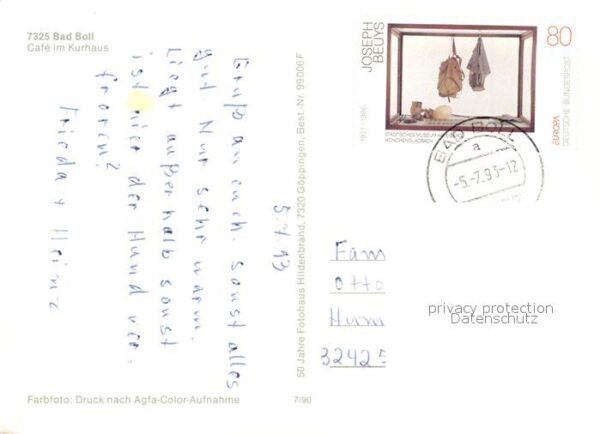 7325 Bad Boll
Café im Kurhaus
5.7.93
Gruß an euch. Sonst alles
gut. Nur sehr warm.
Liegt außerhalb sonst
ist hier der Hund ver-
froren?
Frieda + Heinz
Farbfoto: Druck nach Agfa-Color-Aufnahme
7/90
50 Jahre Fotohaus Hildenbrand, 7320 Göppingen, Best.-Nr. 99006 F
JOSEPH
BEUYS
1921 - 1986
80
STÄDTISCHES MUSEUM
MÖNCHENGLADBACH
EUROPA
DEUTSCHE BUNDESPOST
BAD BOLL
a
-5.-7.93-12
Fam
Otto
Hum
32425
privacy protection
Datenschutz